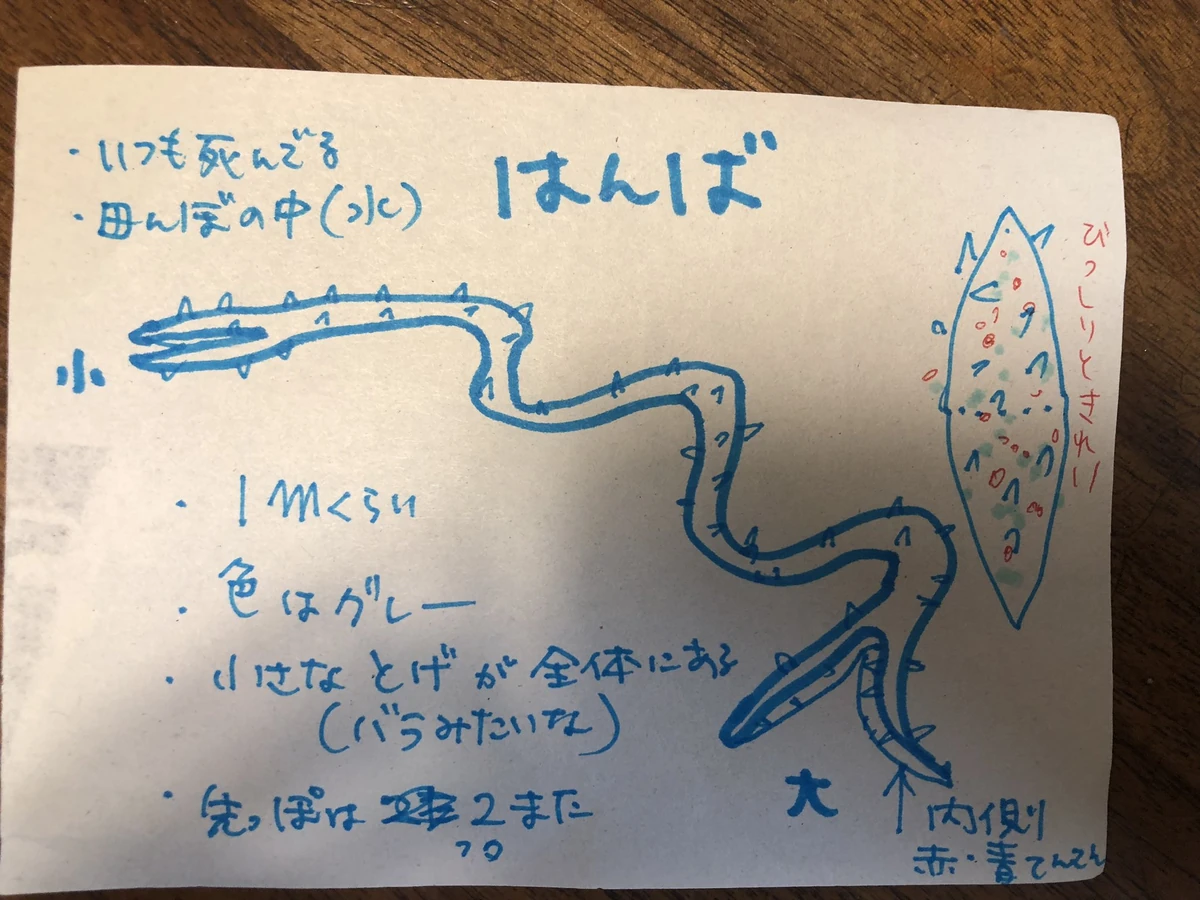 はんば
・いつも死んでる
・田んぼの中(水)
びっしりときれい
小
・1mくらい
・色はグレー
・小さなとげが全体にある
(バラみたいな)
・先っぽは 2また
大
内側
赤・青てんてん